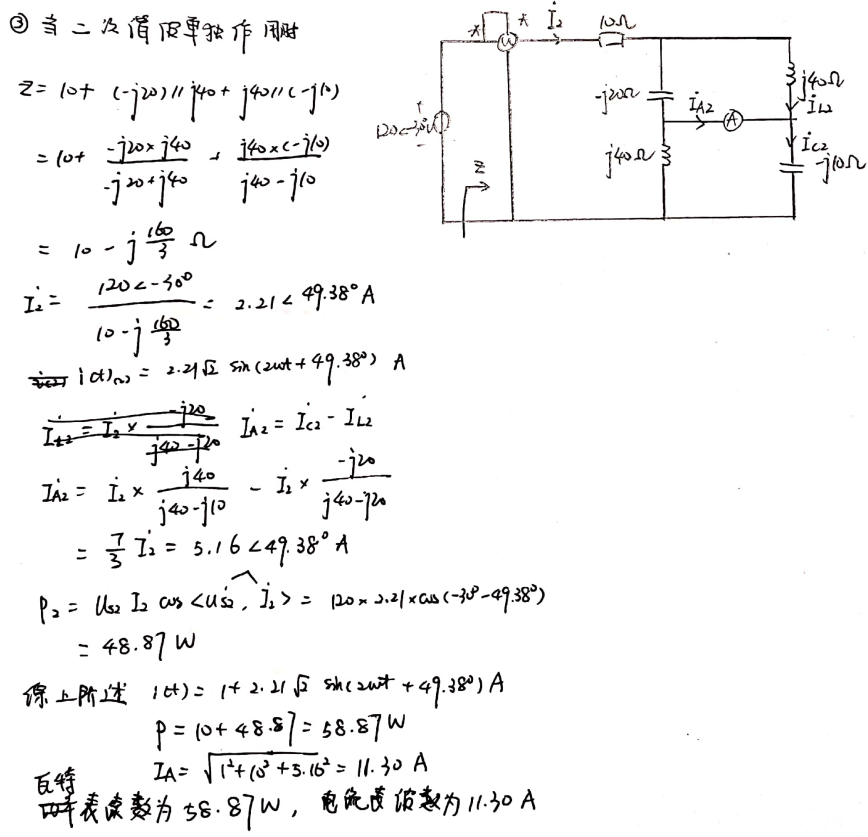 ③ 当二次谐波单独作用时
Z = 10 + (-j20)//j40 + j40//(-j10)
= 10 + \frac{-j20×j40}{-j20+j40} + \frac{j40×(-j10)}{j40-j10}
= 10 - j\frac{160}{3} Ω
İ₂ = \frac{120∠-30°}{10-j\frac{160}{3}} = 2.21∠49.38° A
i(t)₍₂₎ = 2.21√2 sin(2ωt+49.38°) A
İ_{A2} = İ_{C2} - İ_{L2}
İ_{A2} = İ₂ × \frac{j40}{j40-j10} - İ₂ × \frac{-j20}{j40-j20}
= \frac{7}{3} İ₂ = 5.16∠49.38° A
P₂ = U_{S2} I₂ cos<U̇_{S2}, İ₂> = 120×2.21×cos(-30°-49.38°)
= 48.87 W
综上所述 i(t) = 1 + 2.21√2 sin(2ωt+49.38°) A
P = 10 + 48.87 = 58.87 W
I_A = \sqrt{1²+10²+5.16²} = 11.30 A
瓦特
表读数为 58.87W, 电流表读数为 11.30 A
* * İ₂ 10Ω
W
-j20Ω
j40Ω
İ_{A2} A
İ_{L2}
120∠-30°V
+
-
Z
j40Ω
İ_{C2}
-j10Ω